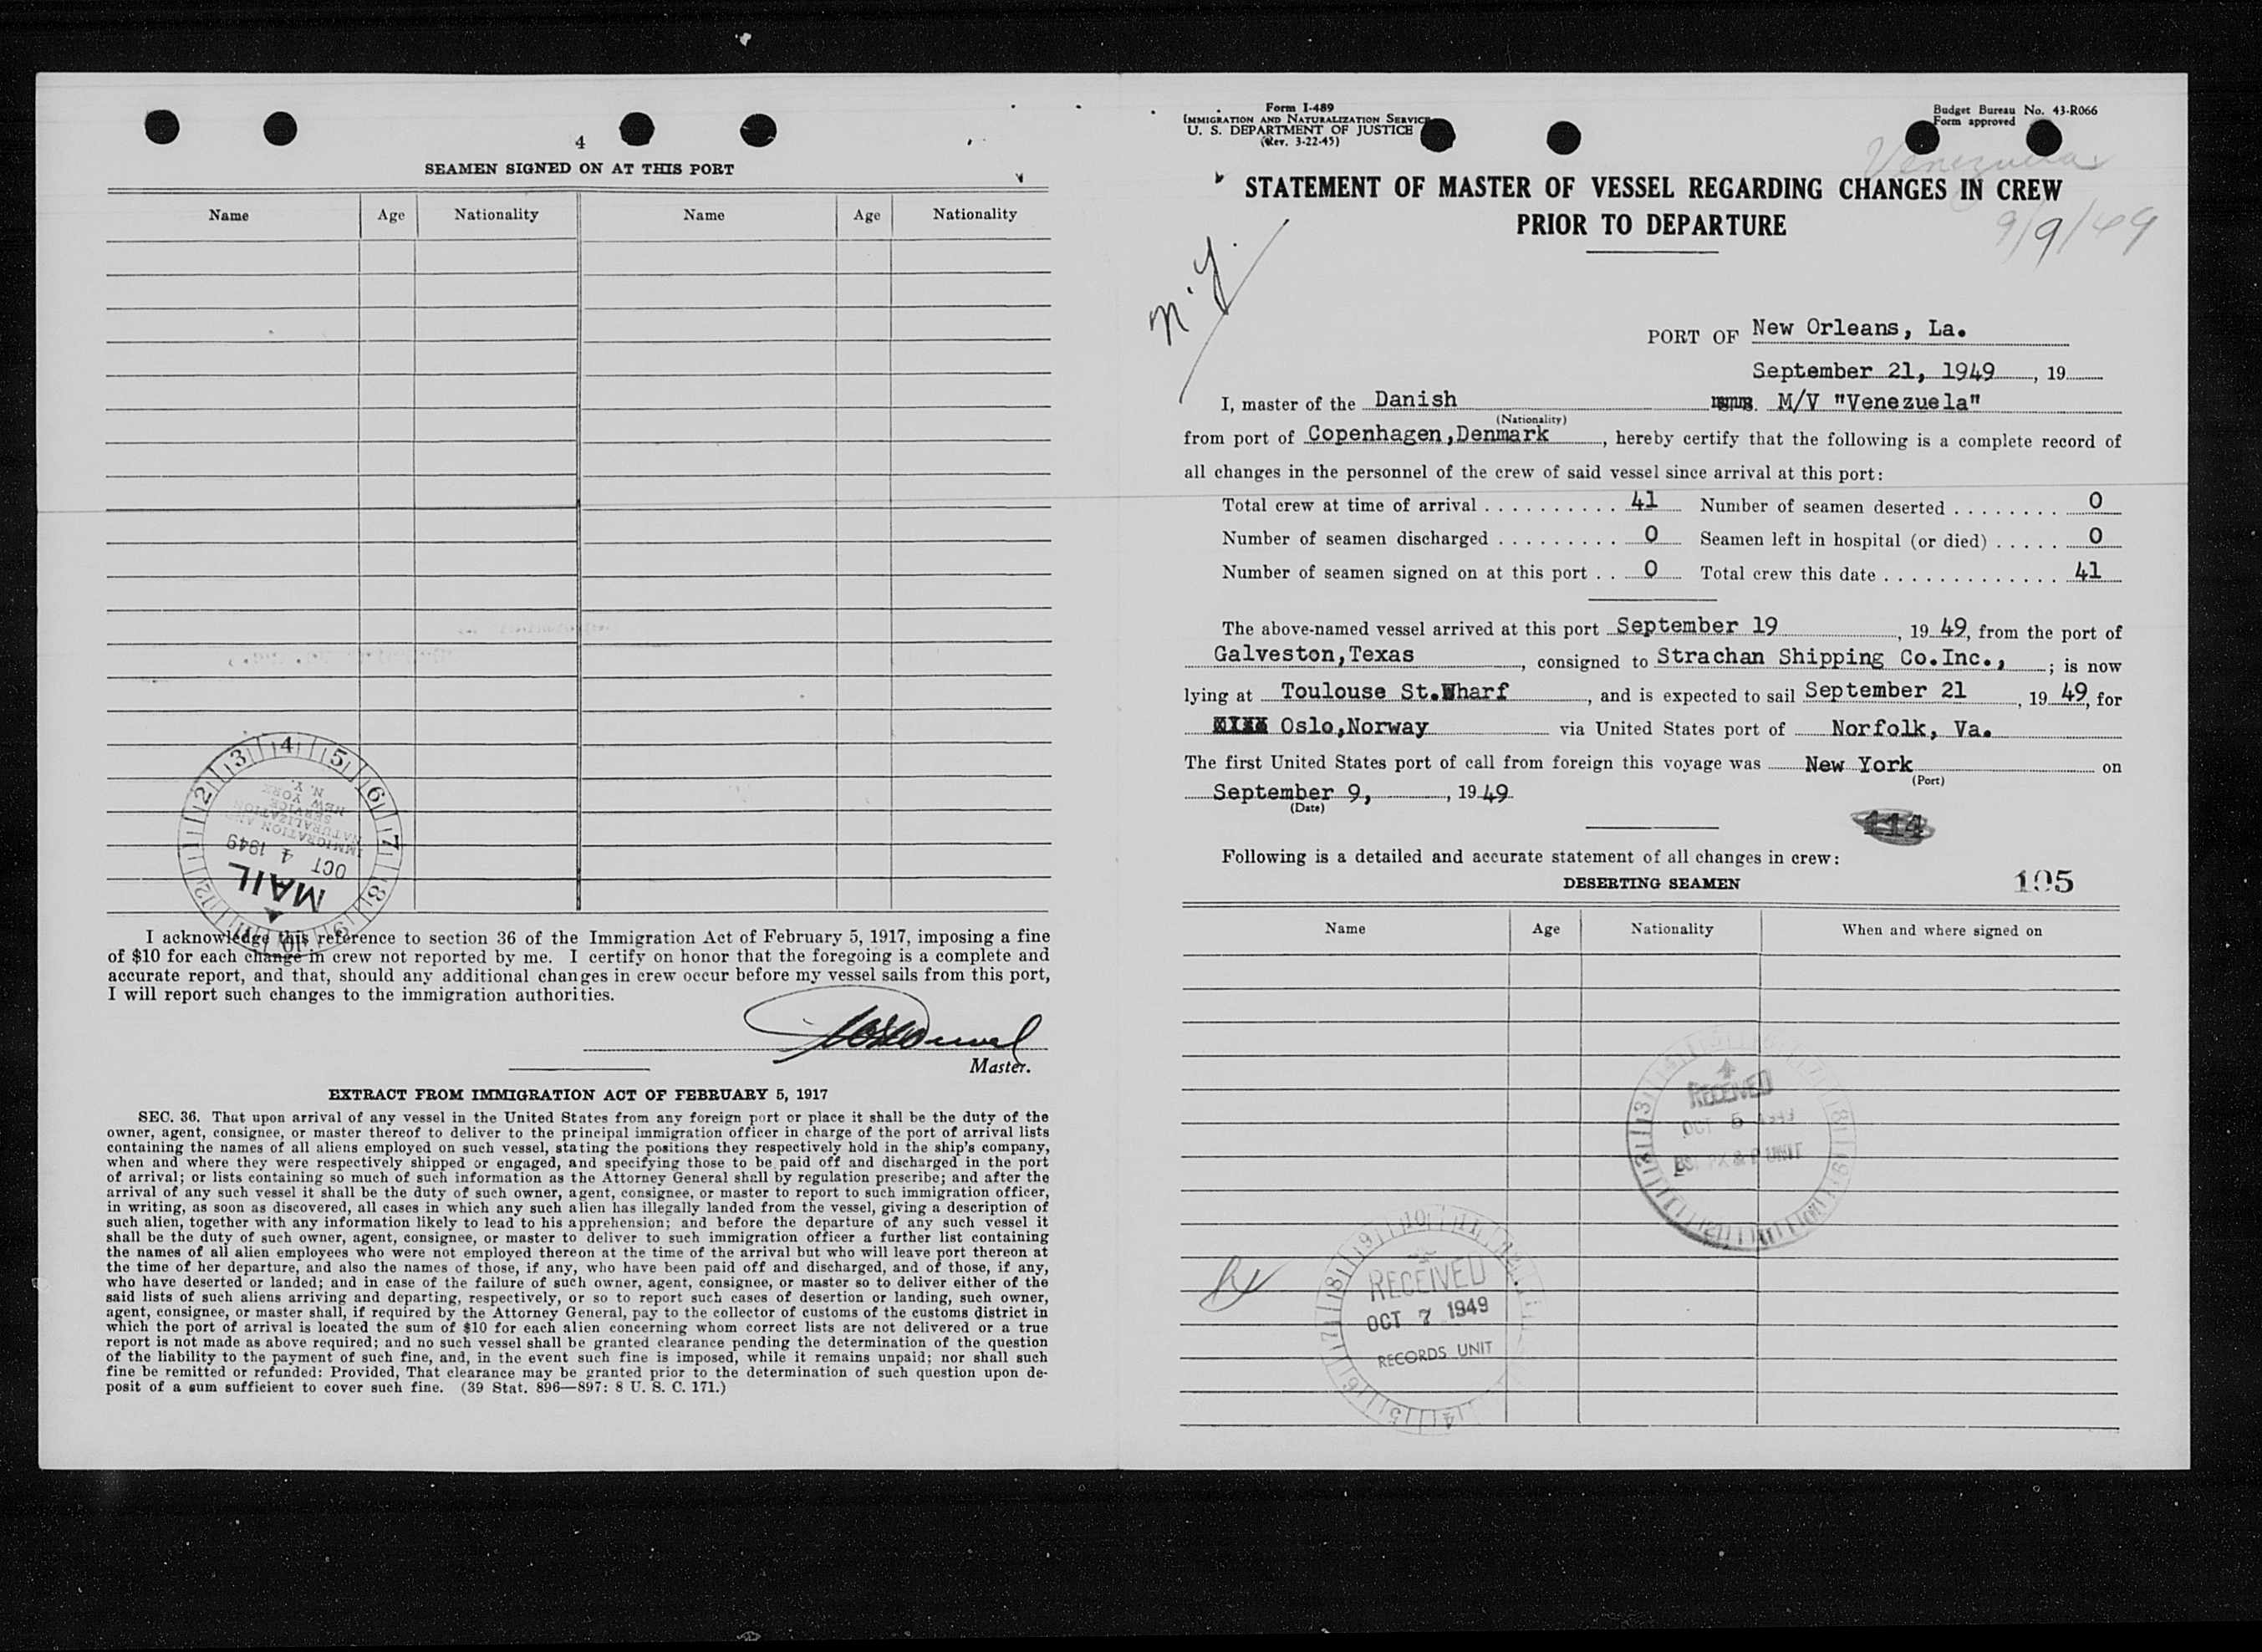 4
SEAMEN SIGNED ON AT THIS PORT
Name Age Nationality Name Age Nationality
4 5 6 7 8 9 10 11 12 1 2 3
IMMIGRATION AND
NATURALIZATION
SERVICE
NEW YORK
N. Y.
OCT 4 1949
MAIL
I acknowledge this reference to section 36 of the Immigration Act of February 5, 1917, imposing a fine
of $10 for each change in crew not reported by me. I certify on honor that the foregoing is a complete and
accurate report, and that, should any additional changes in crew occur before my vessel sails from this port,
I will report such changes to the immigration authorities.
Master.
EXTRACT FROM IMMIGRATION ACT OF FEBRUARY 5, 1917
SEC. 36. That upon arrival of any vessel in the United States from any foreign port or place it shall be the duty of the
owner, agent, consignee, or master thereof to deliver to the principal immigration officer in charge of the port of arrival lists
containing the names of all aliens employed on such vessel, stating the positions they respectively hold in the ship's company,
when and where they were respectively shipped or engaged, and specifying those to be paid off and discharged in the port
of arrival; or lists containing so much of such information as the Attorney General shall by regulation prescribe; and after the
arrival of any such vessel it shall be the duty of such owner, agent, consignee, or master to report to such immigration officer,
in writing, as soon as discovered, all cases in which any such alien has illegally landed from the vessel, giving a description of
such alien, together with any information likely to lead to his apprehension; and before the departure of any such vessel it
shall be the duty of such owner, agent, consignee, or master to deliver to such immigration officer a further list containing
the names of all alien employees who were not employed thereon at the time of the arrival but who will leave port thereon at
the time of her departure, and also the names of those, if any, who have been paid off and discharged, and of those, if any,
who have deserted or landed; and in case of the failure of such owner, agent, consignee, or master so to deliver either of the
said lists of such aliens arriving and departing, respectively, or so to report such cases of desertion or landing, such owner,
agent, consignee, or master shall, if required by the Attorney General, pay to the collector of customs of the customs district in
which the port of arrival is located the sum of $10 for each alien concerning whom correct lists are not delivered or a true
report is not made as above required; and no such vessel shall be granted clearance pending the determination of the question
of the liability to the payment of such fine, and, in the event such fine is imposed, while it remains unpaid; nor shall such
fine be remitted or refunded: Provided, That clearance may be granted prior to the determination of such question upon de-
posit of a sum sufficient to cover such fine. (39 Stat. 896—897: 8 U. S. C. 171.)
Form I-489
IMMIGRATION AND NATURALIZATION SERVICE
U. S. DEPARTMENT OF JUSTICE
(Rev. 3-22-45)
Budget Bureau No. 43-R066
Form approved
Venezuela
9/9/49
N.Y.
STATEMENT OF MASTER OF VESSEL REGARDING CHANGES IN CREW
PRIOR TO DEPARTURE
PORT OF New Orleans, La.
September 21, 1949, 19
I, master of the Danish M/V "Venezuela"
(Nationality)
from port of Copenhagen,Denmark, hereby certify that the following is a complete record of
all changes in the personnel of the crew of said vessel since arrival at this port:
Total crew at time of arrival . . . . . . . . . . 41 Number of seamen deserted . . . . . . . . 0
Number of seamen discharged . . . . . . . . . 0 Seamen left in hospital (or died) . . . . . 0
Number of seamen signed on at this port . . 0 Total crew this date . . . . . . . . . . . . . . 41
The above-named vessel arrived at this port September 19, 19 49, from the port of
Galveston,Texas, consigned to Strachan Shipping Co.Inc.,; is now
lying at Toulouse St.Wharf, and is expected to sail September 21, 19 49, for
Oslo,Norway via United States port of Norfolk, Va.
The first United States port of call from foreign this voyage was New York on
(Port)
September 9,, 19 49
(Date)
114
Following is a detailed and accurate statement of all changes in crew:
DESERTING SEAMEN
105
Name Age Nationality When and where signed on
RECEIVED
OCT 5 1949
UNIT
RECEIVED
OCT 7 1949
RECORDS UNIT